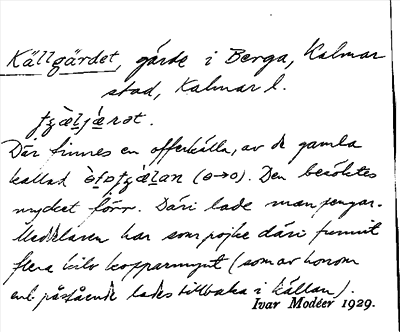 Källgärdet, gärde i Berga, Kalmar
stad, Kalmar l.
Där finnes en offerkälla, av de gamla
kallad (o→o). Den besöktes
mycket förr. Däri lade man pengar.
Meddelaren har som pojke däri funnit
flera kilo kopparmynt (som av honom
enl. påstående lades tillbaka i källan).
Ivar Modéer 1929.